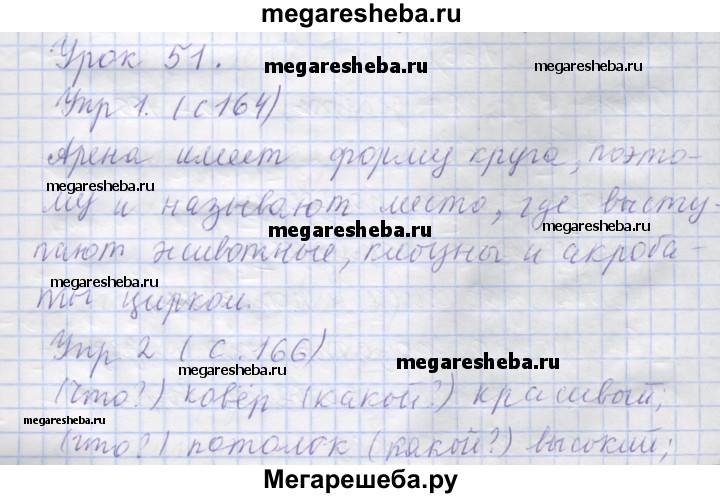 megaresheba.ru
Урок 51.
megaresheba.ru
megaresheba.ru
Упр 1. (с 164)
Арена имеет форму круга, поэто-
megaresheba.ru
му и называют место, где высту-
megaresheba.ru
megaresheba.ru
пают животные, клоуны и акроба-
megaresheba.ru
ты цирком.
megaresheba.ru
Упр 2 (с. 166)
megaresheba.ru
megaresheba.ru
(что?) ковёр (какой?) красивый,
megaresheba.ru
(что?) потолок (какой?) высокий;
Мегарешеба.ру